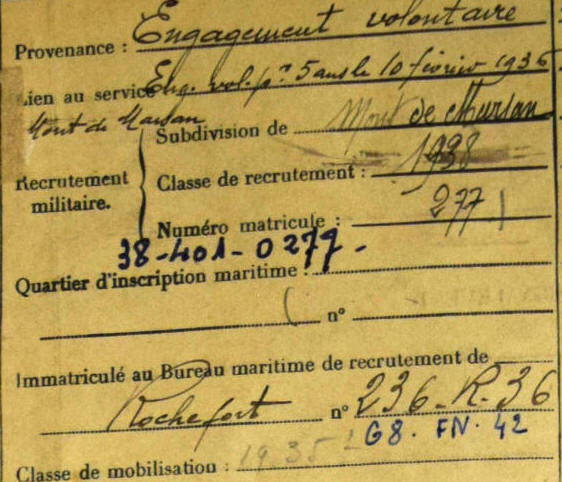 Provenance : Engagement volontaire
Lien au service Eng. vol. pr 5 ans le 10 février 1936
Mont de Marsan
Subdivision de Mont de Marsan
Recrutement militaire.
Classe de recrutement : 1938
Numéro matricule : 277
38-401-0277-
Quartier d'inscription maritime :
n°
Immatriculé au Bureau maritime de recrutement de
Rochefort n° 236-R-36
G8. FN. 42
Classe de mobilisation : 1935